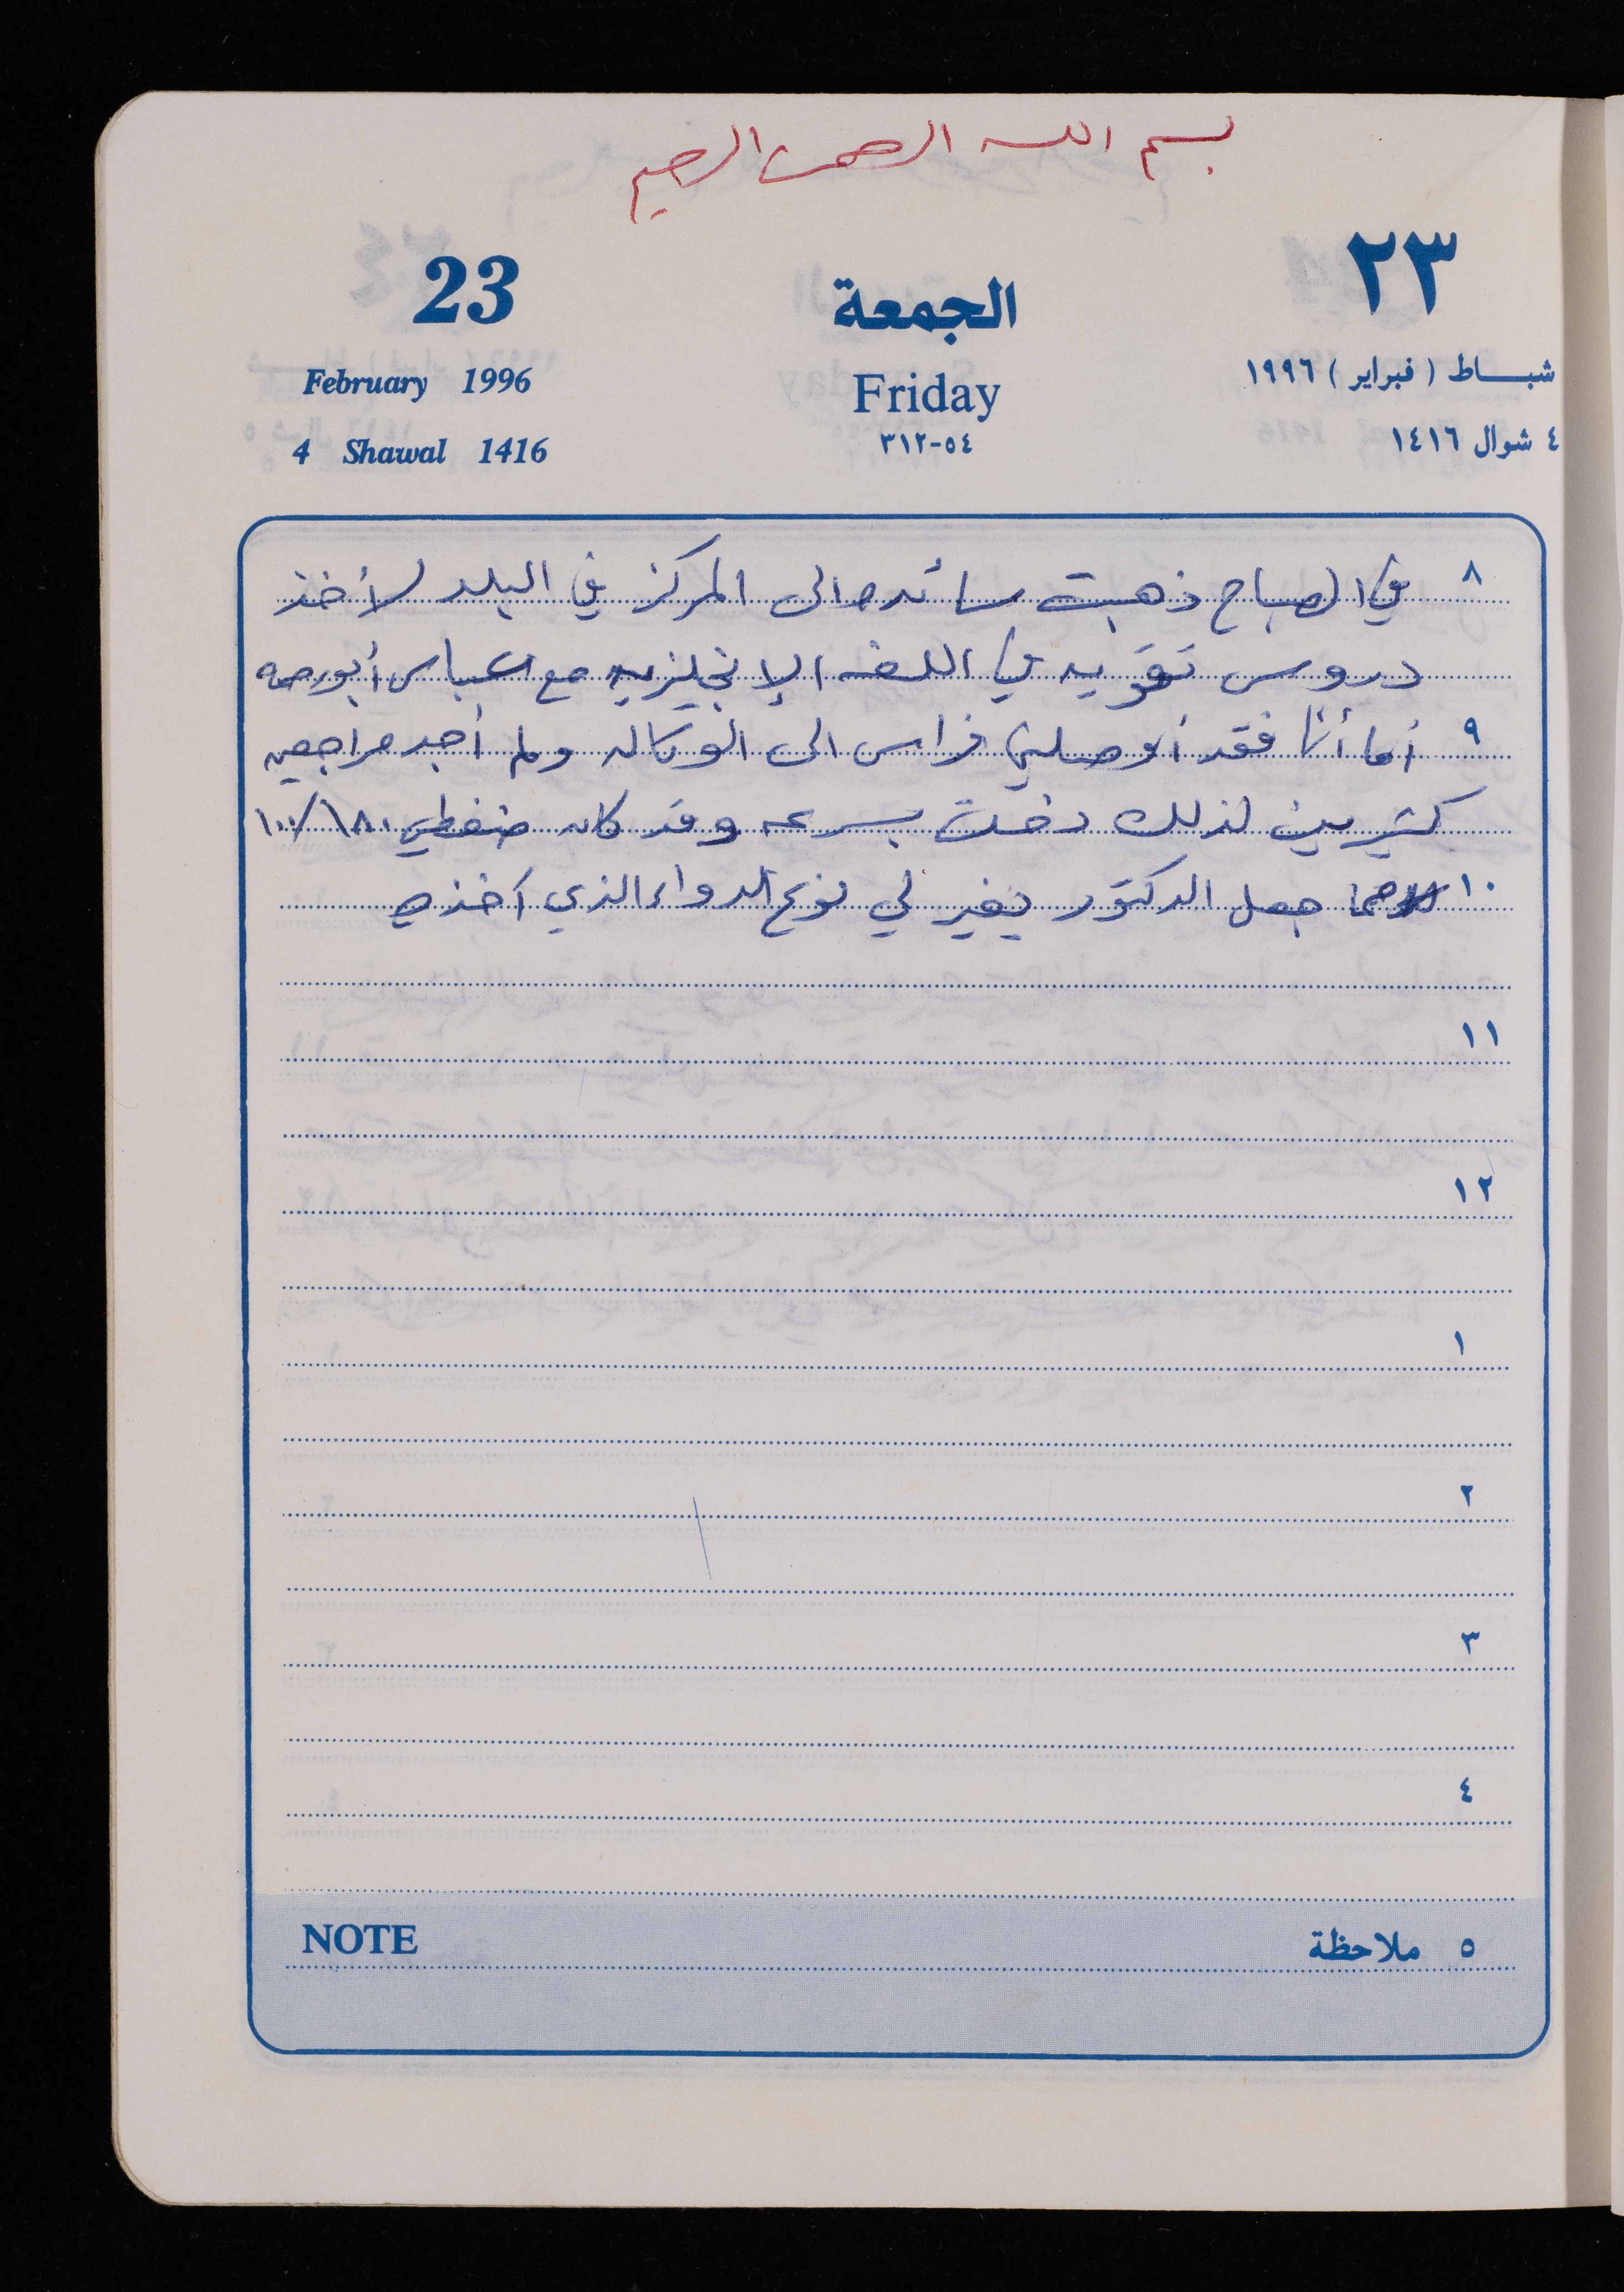 بسم الله الرحمن الرحيم
23 الجمعة ٢٣
February 1996 Friday شباط (فبراير) ١٩٩٦
4 Shawal 1416 ٣١٢-٥٤ ٤ شوال ١٤١٦
٨ في الصباح ذهبت سائده الى المركز في البلد لأخذ
دروس تقويه في اللغه الإنجليزيه مع عباس أبورحمه
٩ أما أنا فقد أوصلني فراس الى الوكاله ولم أجد مراجعين
كثيرين لذلك دخلت بسرعه وقد كان ضغطي ١٨٠/١٠٠
١٠ مما جعل الدكتور يغير لي نوع الدواء الذي آخذه
١١
١٢
١
٢
٣
٤
NOTE ٥ ملاحظة